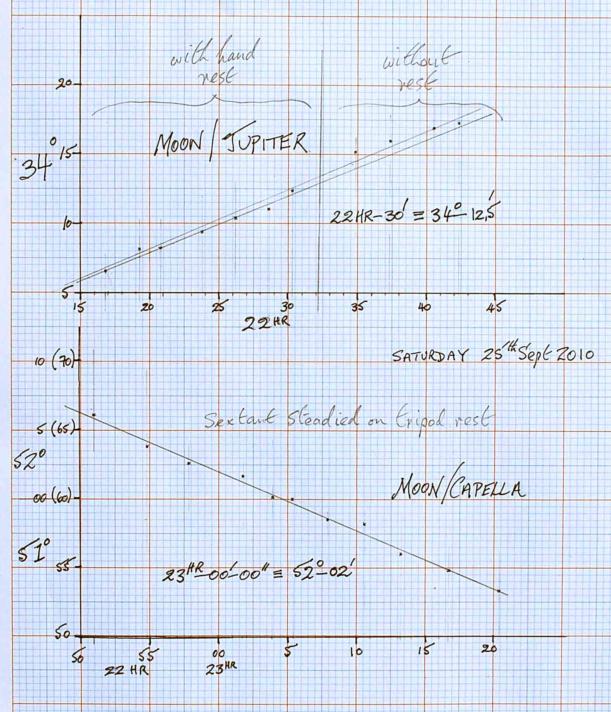 with hand
rest
without
rest
20
MOON / JUPITER
34° 15
22HR-30' ≡ 34°-12,5'
10
5
15 20 25 30 35 40 45
22HR
SATURDAY 25th Sept 2010
10 (70)
Sextant steadied on tripod rest
5 (65)
52°
MOON/CAPELLA
00 (60)
51°
55
23HR-00'-00" ≡ 52°-02'
50
50 55 00 5 10 15 20
22 HR 23HR